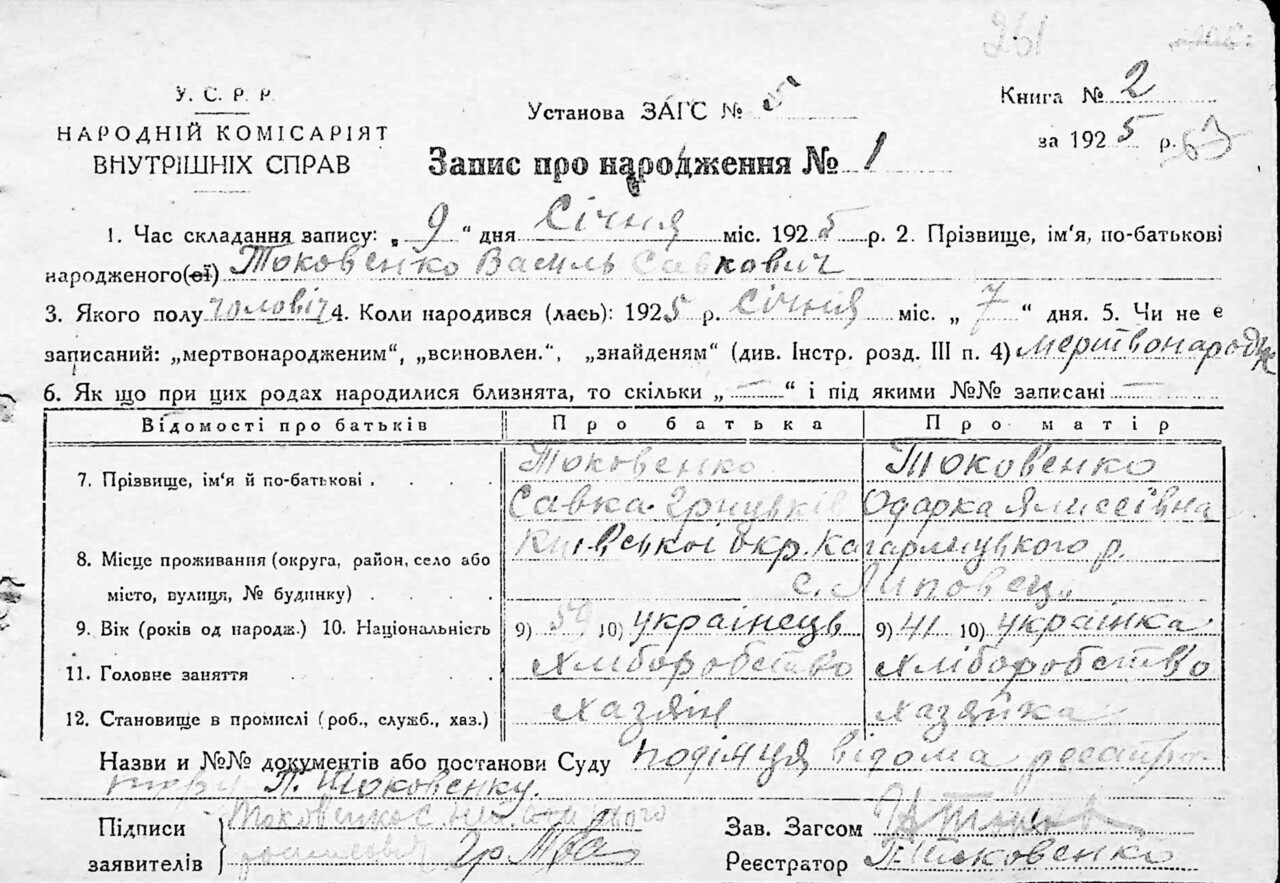 261
У. С. Р. Р.
НАРОДНІЙ КОМІСАРІЯТ
ВНУТРІШНІХ СПРАВ
Установа ЗАГС №
Книга № 2
за 1925 р.
63
Запис про народження № 1
1. Час складання запису: „ 9 “ дня Січня міс. 1925 р. 2. Прізвище, ім'я, по-батькові
народженого(ої) Токовенко Василь Савкович
3. Якого полу чоловіч 4. Коли народився (лась): 1925 р. Січня міс. „ 7 “ дня. 5. Чи не є
записаний: „мертвонародженим“, „всиновлен.“, „знайденям“ (див. Інстр. розд. III п. 4) мертвонародж
6. Як що при цих родах народилися близнята, то скільки „ — “ і під якими №№ записані —
Відомості про батьків Про батька Про матір
7. Прізвище, ім'я й по-батькові . . . . Токовенко Токовенко
Савка Грицьків Одарка Ялисеївна
8. Місце проживання (округа, район, село або Київської окр. Кагарлицького р.
місто, вулиця, № будинку) . . . . с. Липовець
9. Вік (років од народж.) 10. Національність 9) 59 10) українець 9) 41 10) українка
11. Головне заняття . . . . Хліборобство Хліборобство
12. Становище в промислі (роб., служб., хаз.) хазяїн хазяйка
Назви и №№ документів або постанови Суду подіяця відома
П. Токовенку.
Підписи Токовенко С.
заявителів гр
Зав. Загсом
Реєстратор П Токовенко